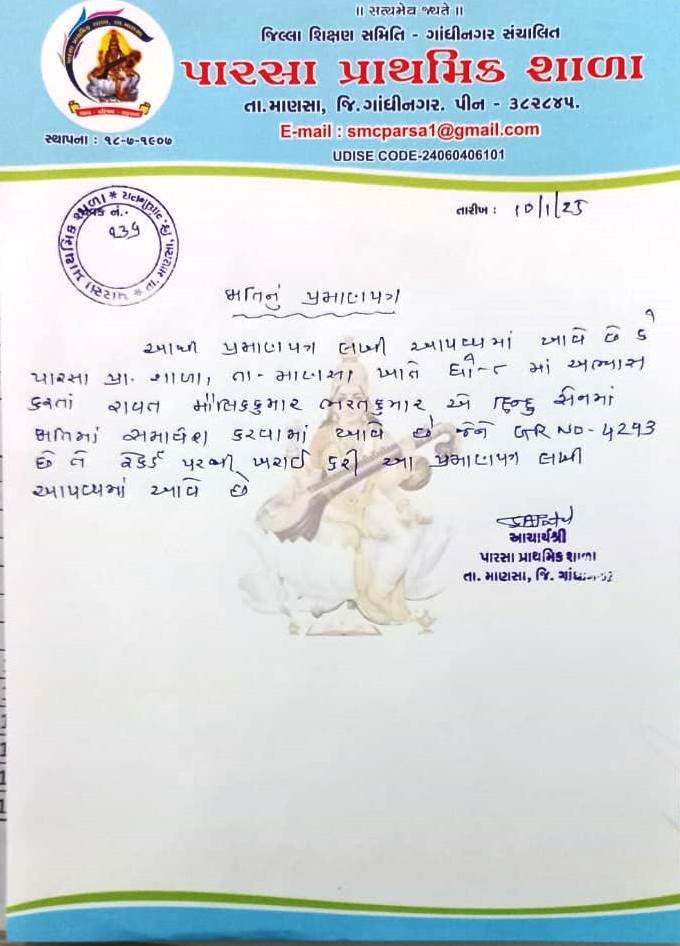 ॥ સત્યમેવ જયતે ॥
જિલ્લા શિક્ષણ સમિતિ - ગાંધીનગર સંચાલિત
પારસા પ્રાથમિક શાળા
તા.માણસા, જિ.ગાંધીનગર. પીન - ૩૮૨૮૪૫.
સ્થાપના : ૧૮-૭-૧૯૦૭
E-mail : smcparsa1@gmail.com
UDISE CODE-24060406101
જાવક નં.-
તારીખ : 10/1/25
૨૩૬
પારસા પ્રાથમિક શાળા
જાતિનું પ્રમાણપત્ર
આથી પ્રમાણપત્ર લખી આપવામાં આવે છે કે
પારસા પ્રા. શાળા, તા- માણસા ખાતે ધો-૮ માં અભ્યાસ
કરતાં રાવત મૌલિકકુમાર ભરતકુમાર એ હિન્દુ સેનમાં
જાતિમાં સમાવેશ કરવામાં આવે છે જેને GR NO - 4293
છે તે રેકર્ડ પરથી ખરાઈ કરી આ પ્રમાણપત્ર લખી
આપવામાં આવે છે
આચાર્યશ્રી
પારસા પ્રાથમિક શાળા
તા. માણસા, જિ. ગાંધીનગર